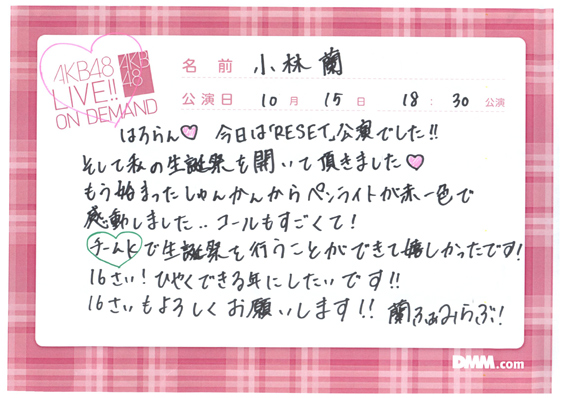 AKB48
LIVE!!
ON DEMAND
AKB
48
名前 小林蘭
公演日 10月 15日 18:30 公演
はろらん♡ 今日は「RESET」公演でした!!
そして私の生誕祭を開いて頂きました♡
もう始まったしゅんかんからペンライトが赤一色で
感動しました..コールもすごくて!
チームKで生誕祭を行うことができて嬉しかったです!
16さい!ひやくできる年にしたいです!!
16さいもよろしくお願いします!! 蘭ふぁみらぶ!
DMM.com